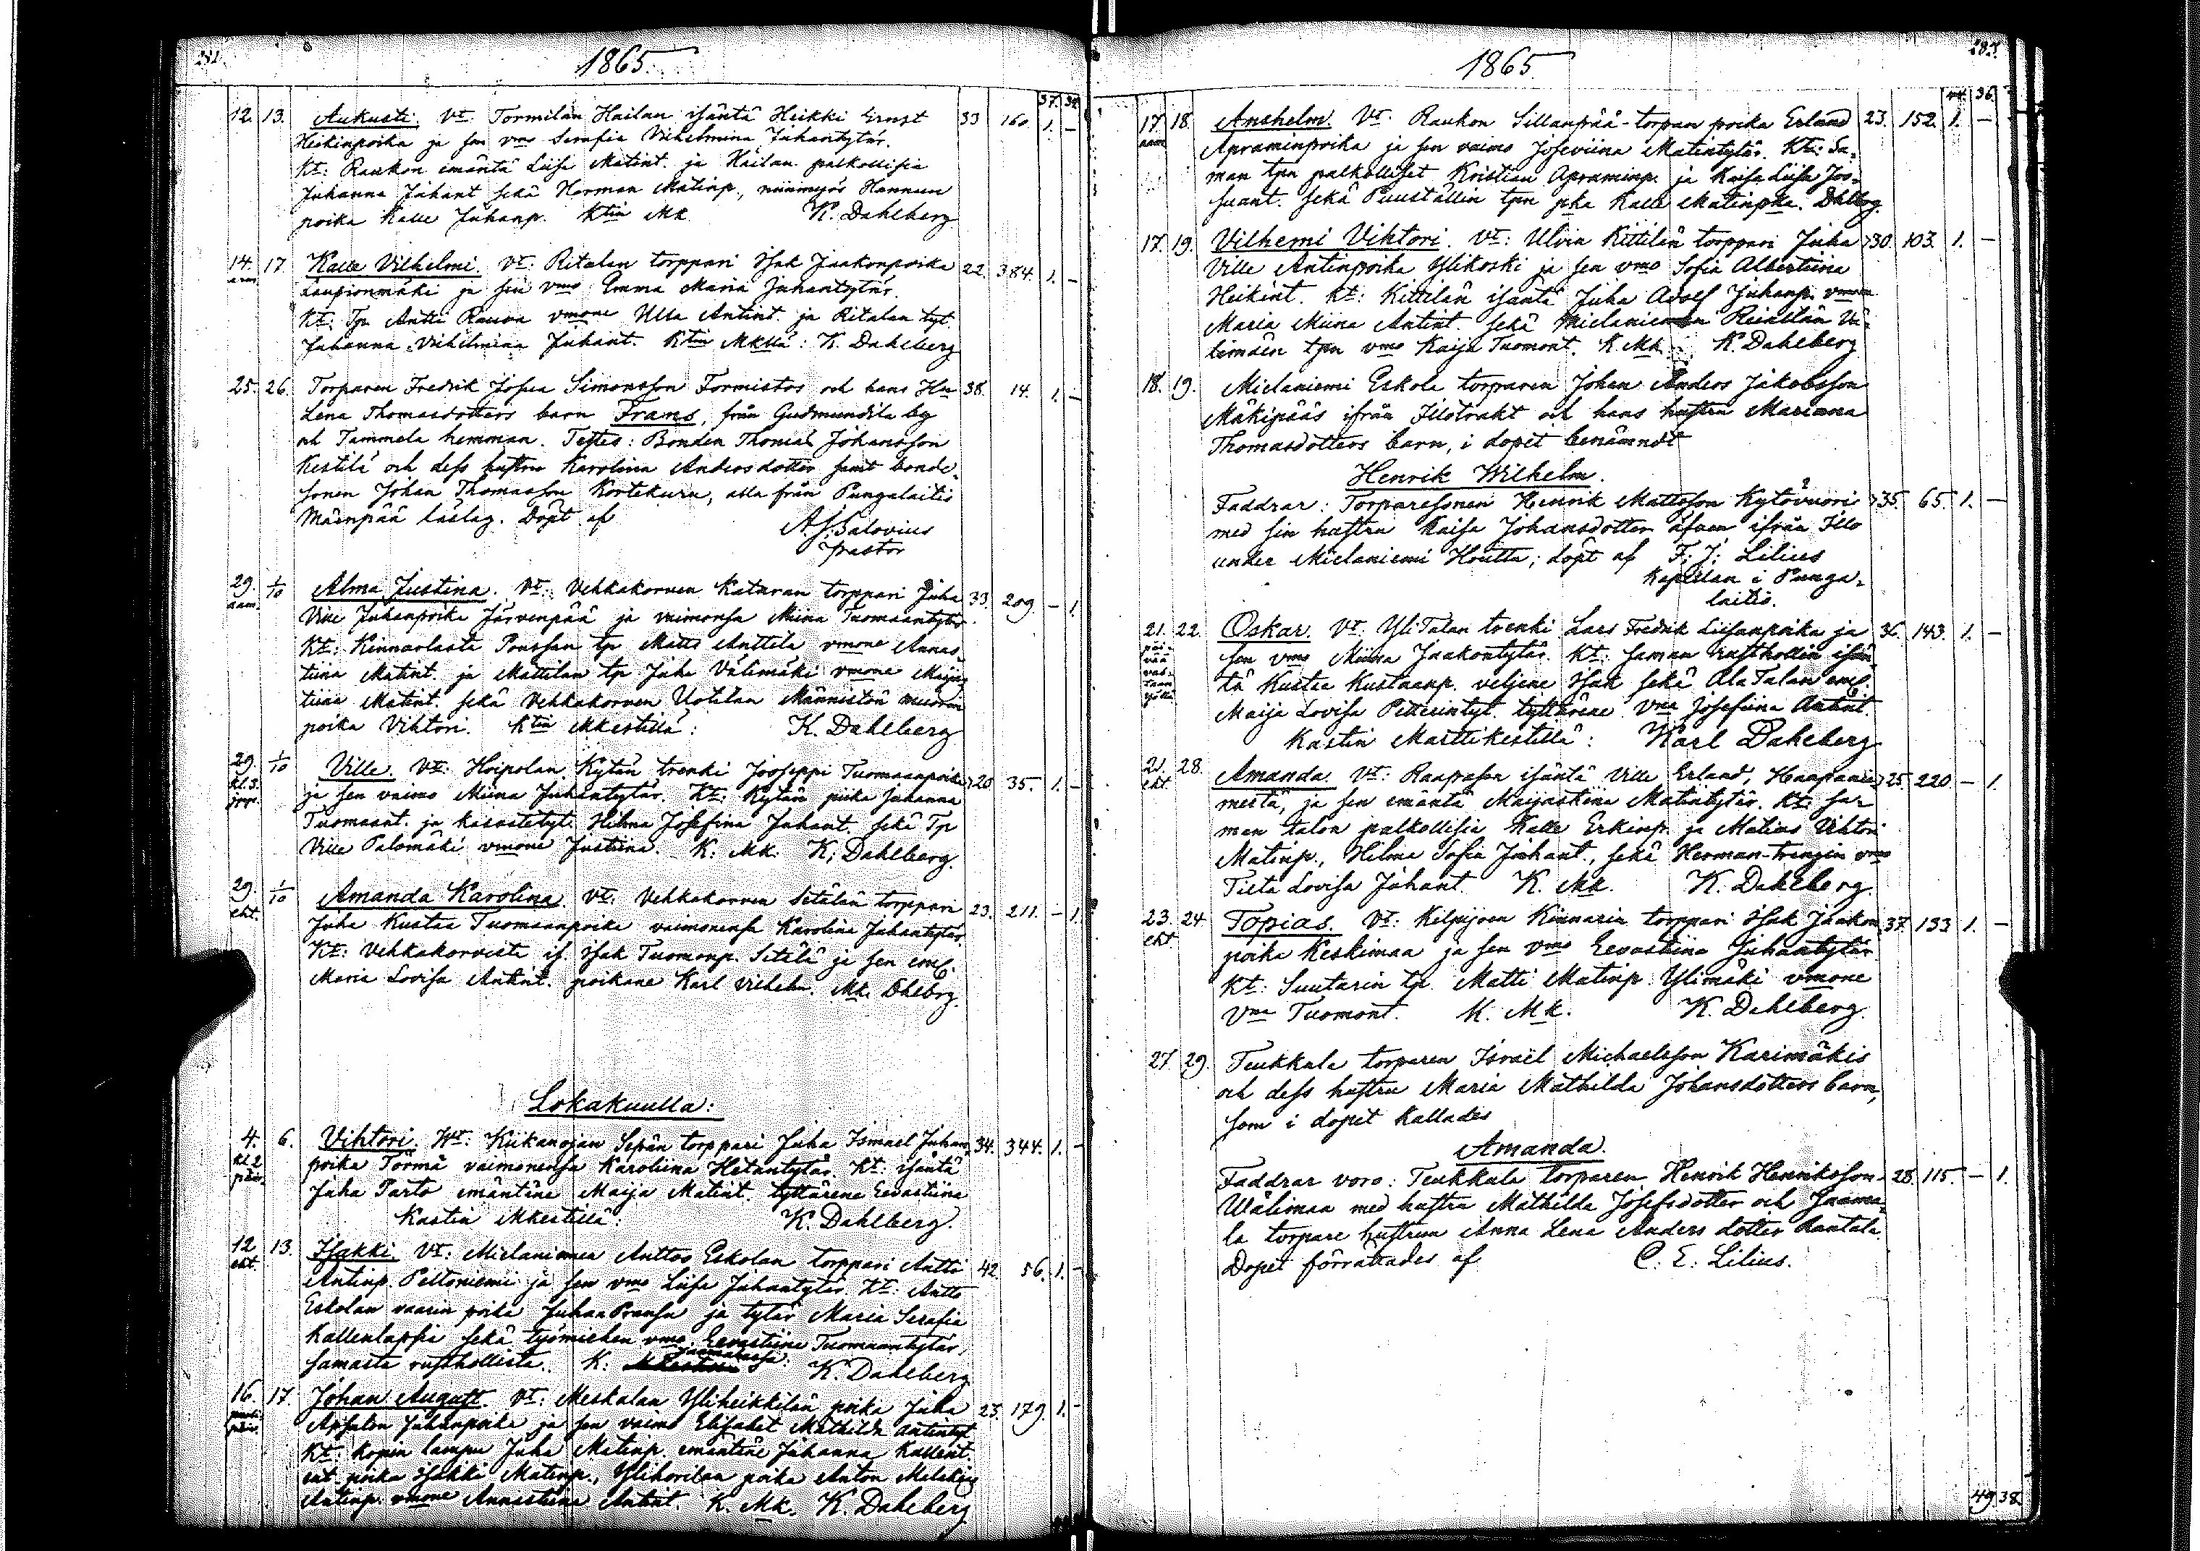 1865.
37. 32.
12. 13. Aukusti. Vt. Tormilan Hailan isäntä Heikki Ernst 33 160. 1. –
Heikinpoika ja sen vmo Serafia Vilhelmina Juhantytär.
Kt: Raukon emäntä Liisa Matint. ja Hailan palkollisia
Juhanna Juhant sekä Herman Matinp., niinmyös Hannun
poika Kalle Juhanp. Ktin Mk. K. Dahlberg
14. 17. Kalle Vilhelmi. Vt: Ritalan torppari Isak Jaakonpoika 22. 384. 1. –
aam.
Laupionmäki ja sen vmo Emma Maria Juhantytär.
Kt: Tp. Antti Rauva vmone Ulla Antint. ja Ritalan tyt.
Juhanna Vilhelmina Juhant. Ktin Mkllä: K. Dahlberg
25. 26. Torparen Fredrik Josua Simonsson Tormistos och hans Hu 38. 14. 1. –
Lena Thomasdotters barn Frans, från Gudmundila by
och Tammela hemman. Testes: Bonden Thomas Johansson
Kestilä och dess hustru Karolina Andersdotter samt bonde-
sonen Johan Thomasson Kortekuru, alla från Pungalaitis
Mäenpää läslag. Döpt af A. J. Salovius
pastor
29. 1/10 Alma Justina. Vt: Vehkakorven Kataran torppari Juha 33. 209. – 1.
aam.
Ville Juhanpoika Järvenpää ja vaimonsa Miina Tuomaantytär.
Kt: Kinnarlasta Poussan tp Matts Anttila vmone Annas-
tiina Matint. ja Mattilan tp Juha Välimäki vmone Maijas
tiina Matint. sekä Vehkakorven Uotilan Männistön muorin
poika Vihtori. Ktin Mkestillä: K. Dahlberg
29. 1/10 Ville. Vt: Hoipolan Kytän trenki Jooseppi Tuomaanpoika 20. 35. 1. –
kl. 3.
ja sen vaimo Miina Juhantytär. Kt: Kytän piika Juhanna
Tuomaant. ja kasvatetyt. Hilma Josefina Juhant. sekä Tp
Ville Palomäki vmone Justiina. K. Mk. K. Dahlberg.
29. 1/10 Amanda Karolina. Vt: Vehkakorven Setälän torppari 23. 211. – 1.
eht.
Juha Kustaa Tuomaanpoika vaimonensa Karolina Juhantytär.
Kt: Vehkakorvesta is. Isak Tuomanp. Setälä ja sen em.
Maria Lovisa Antint. poikane Karl Vilhelm. Mk. Dhlbrg.
Lokakuulla:
4. 6. Vihtori. Vt: Kiikanojan Sepän torppari Juha Ismael Juhan 34. 344. 1. –
kl. 2
poika Törmä vaimonensa Karoliina Hetantytär. Kt: isäntä
Juha Parto emäntäne Maija Matint. tyttärene Eevastiina
Kastin Mkestillä: K. Dahlberg.
12. 13. Isakki. Vt: Mielanimen Anttos Eskolan torppari Antti 42. 56. 1. –
eht.
Antinp. Peltoniemi ja sen vmo Liisa Juhantytär. Kt: Antto
Eskolan vaarin poika Juhan Pransu ja tytär Maria Serafia
Kallenlapsia sekä työmiehen vmo Eevastiina Tuomaantytär,
samasta rusthollista. K: K. Dahlberg
16. 17. Johan August. Vt: Meskalan Yliheikkilän poika Juha 23. 179. 1. –
Apsalon Juhanpoika ja sen vaimo Elisabet Mathilda Antintyt.
Kt: Kopin lampu Juha Matinp. emäntäne Juhanna Kallent.
poika Isakki Matinp., Ylihorilan poika Anton Malakias
Antinp. vmone Annastiina Antint. K. Mk. K. Dahlberg
1865
36.
17. 18. Anshelm. Vt. Raukon Sillanpää-torpan poika Erland 23. 152. 1. –
aam.
Apraminpoika ja sen vaimo Joseviina Matintytär. Kt: Sa-
man tpn palkolliset Kristian Apraminp. ja Kaisa Liisa Joo-
suant. sekä Puuställin tpn pka Kalle Matinpka. Dhlbrg.
17. 19. Vilhemi Vihtori. Vt: Ulvin Kittilän torppari Juha 30. 103. 1. –
Ville Antinpoika Ylikoski ja sen vmo Sofia Albertiina
Heikint. Kt: Kittilän isäntä Juha Adolf Juhanp. vmone
Maria Miina Antint. sekä Mielaniemen
tpn vmo Kaija Tuomont. K. Mk. K. Dahlberg
18. 19. Mielaniemi Eskola torparen Johan Anders Jakobsson
Mäkipääs ifrån Ilotrakt och hans hustru Mariana
Thomasdotters barn, i dopet benämndt
Henrik Wilhelm.
Faddrar: Torparesonen Henrik Mattsson Kytövuori 35. 65. 1. –
med sin hustru Kaisa Johansdotter äfven ifrån Illo
under Mielaniemi Houtta; döpt af F. J. Lilius
Kapellan i Punga-
laitio.
21. 22. Oskar. Vt: YliTalan trenki Lars Fredrik Liisanpoika ja 36. 143. 1. –
sen vmo Miina Jaakontytär. Kt: saman rusthollin isän-
tä Kustaa Kustaanp. veljene Isak sekä AlaTalan em.
Maija Lovisa Petterintyt. tyttärene Vna Josefiina Antint.
Kastin Marttikestillä: Karl Dahlberg
21. 28. Amanda. Vt: Raapasan isäntä Ville Erland, Haapanie- 25. 220. – 1.
eht.
mestä, ja sen emäntä Maijastiina Matintytär. Kt: sa-
man talon palkollisia Kalle Erkinp. ja Matias Vihtori
Matinp., Hilma Sofia Juhant., sekä Herman-trengin vmo
Tieta Lovisa Juhant. K. Mk. K. Dahlberg.
23. 24. Topias. Vt: Kilpijoen Kinnarin torppari Isak Jaakon- 37. 133. 1. –
eht.
poika Keskimaa ja sen vmo Eevastiina Juhantytär.
Kt: Suutarin tp. Matti Matinp. Ylimäki vmone
Vna Tuomont. K. Mk. K. Dahlberg.
27. 29. Teukkala torparen Israel Michaelsson Karimäkis
och dess hustru Maria Mathilda Johansdotters barn,
som i dopet kallades
Amanda.
Faddrar voro: Teukkala torparen Henrik Henriksson 28. 115. – 1.
Wälimaa med hustru Mathilda Josefsdotter och Jaama-
la torpare hustrun Anna Lena Anders dotter Rantala.
Dopet förrättades af C. E. Lilius.
49 38